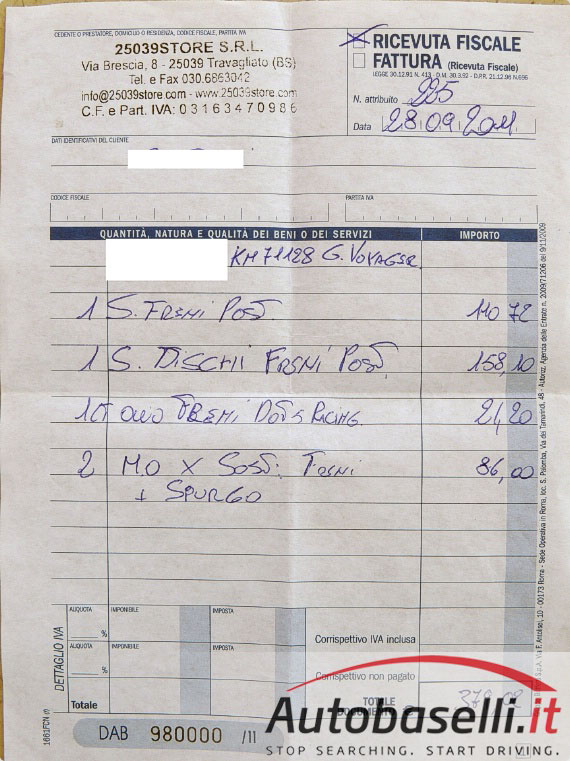 CEDENTE O PRESTATORE, DOMICILIO O RESIDENZA, CODICE FISCALE, PARTITA IVA
25039STORE S.R.L.
Via Brescia, 8 - 25039 Travagliato (BS)
Tel. e Fax 030.6863042
info@25039store.com - www.25039store.com
C.F. e Part. IVA: 03163470986
RICEVUTA FISCALE
FATTURA (Ricevuta Fiscale)
LEGGE 30.12.91 N. 413 - D.M. 30.3.92 - D.P.R. 21.12.96 N.696
N. attribuito 225
Data 28.09.2011
DATI IDENTIFICATIVI DEL CLIENTE
CODICE FISCALE
PARTITA IVA
QUANTITÀ, NATURA E QUALITÀ DEI BENI O DEI SERVIZI IMPORTO
KM 71128 G. VOYAGER
1 S. FRENI POST. 110 72
1 S. DISCHI FRENI POST. 158,10
OLIO FRENI DOT 5 RACING 21,20
2 M.O X SOST. FRENI 86,00
+ SPURGO
DETTAGLIO IVA
ALIQUOTA IMPONIBILE IMPOSTA
%
ALIQUOTA IMPONIBILE IMPOSTA
%
Totale
Corrispettivo IVA inclusa
Corrispettivo non pagato
TOTALE
DOCUMENTO
DAB 980000 /11
1661FCN
Autobaselli.it
STOP SEARCHING. START DRIVING.